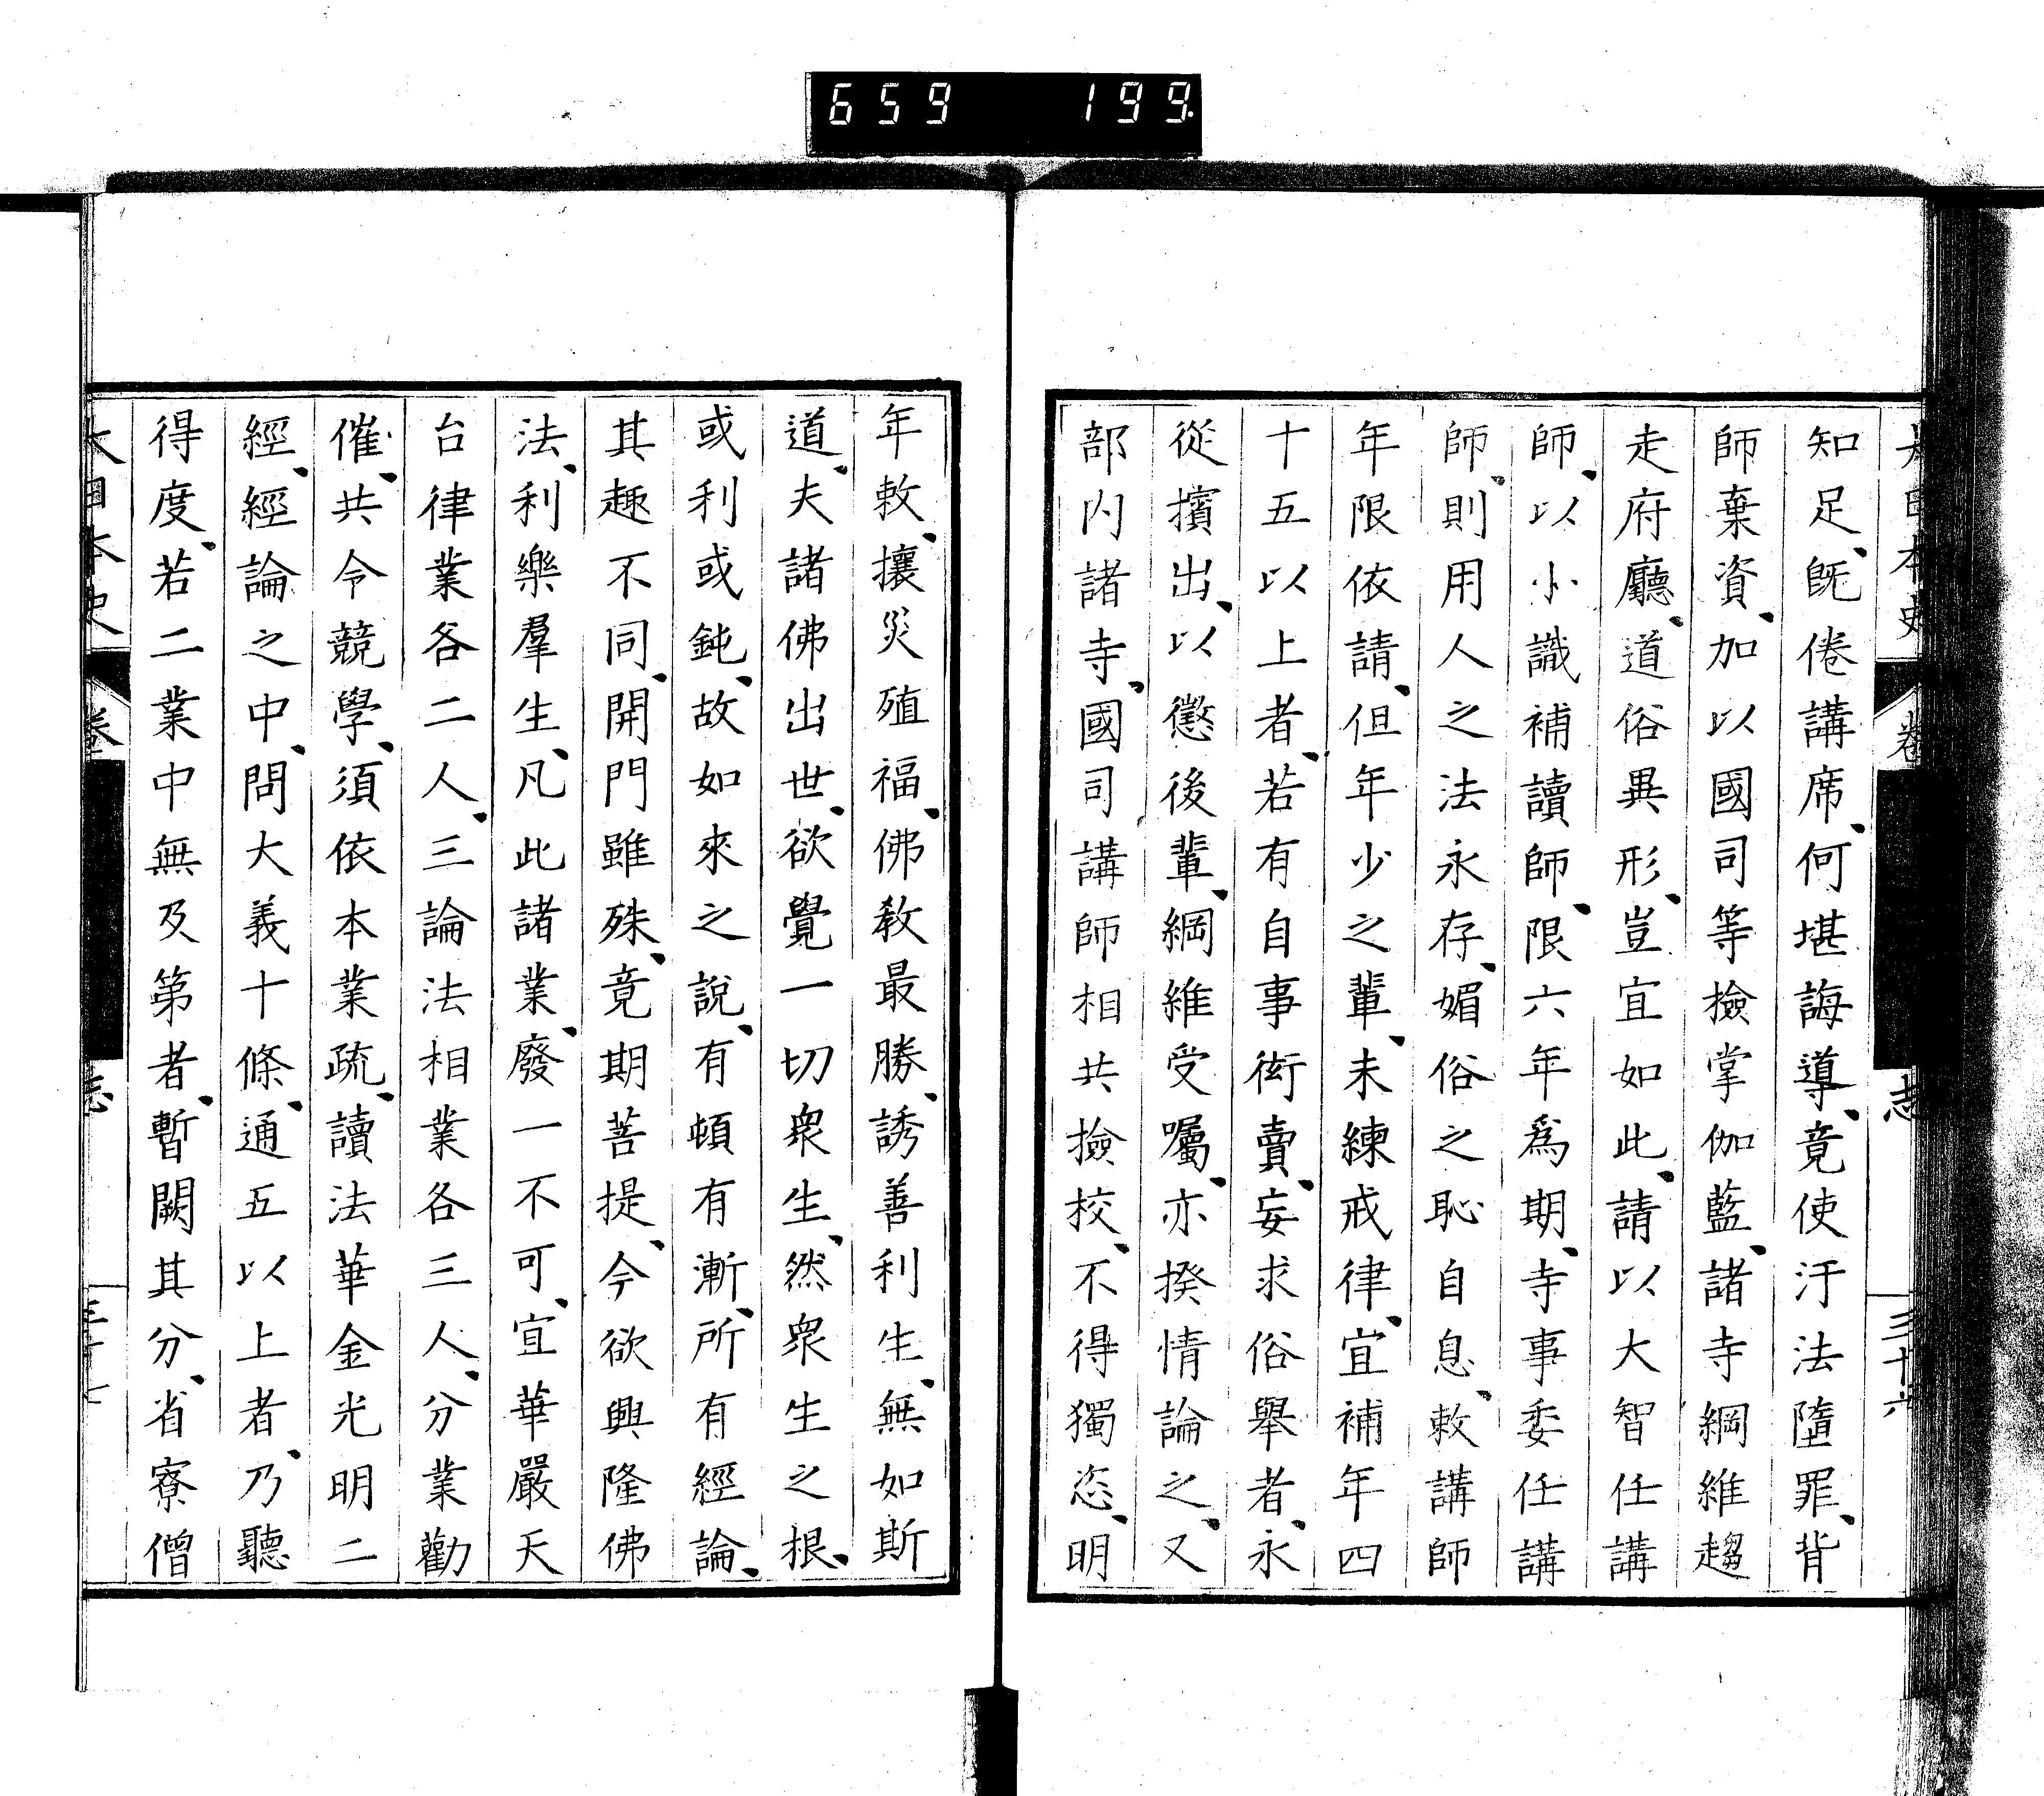 659 199
大日本史 卷 志 三十六
知足、既倦講席、何堪誨導、竟使汙法墮罪、背
師棄資、加以國司等撿掌伽藍、諸寺綱維趨
走府廳、道俗異形、豈宜如此、請以大智任講
師、以小識補讀師、限六年爲期、寺事委任講
師、則用人之法永存、媚俗之恥自息、敕講師
年限依請、但年少之輩、未練戒律、宜補年四
十五以上者、若有自事衒賣、妄求俗舉者、永
從擯出、以懲後輩、綱維受囑、亦揆情論之、又
部内諸寺、國司講師相共撿校、不得獨恣、明
年敕、攘災殖福、佛教最勝、誘善利生、無如斯
道、夫諸佛出世、欲覺一切衆生、然衆生之根、
或利或鈍、故如來之說、有頓有漸、所有經論、
其趣不同、開門雖殊、竟期菩提、今欲興隆佛
法、利樂羣生、凡此諸業、廢一不可、宜華嚴天
台律業各二人、三論法相業各三人、分業勸
催、共令競學、須依本業疏、讀法華金光明二
經、經論之中、問大義十條、通五以上者、乃聽
得度、若二業中無及第者、暫闕其分、省寮僧
大日本史 卷 志 三十七